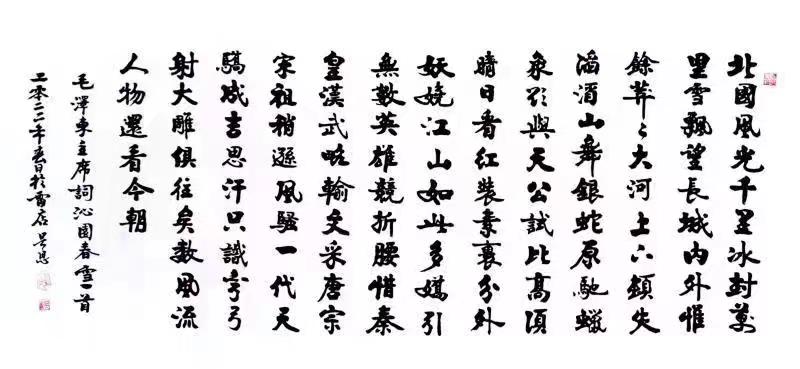 北國風光千里冰封萬
里雪飄望長城内外惟
餘莽〻大河上下頓失
滔滔山舞銀蛇原馳蠟
象欲與天公試比高須
晴日看紅裝素裹分外
妖嬈江山如此多嬌引
無數英雄競折腰惜秦
皇漢武略輸文采唐宗
宋祖稍遜風騷一代天
驕成吉思汗只識彎弓
射大雕俱往矣數風流
人物還看今朝
毛澤東主席詞沁園春雪一首
二零二二年春日於雷店